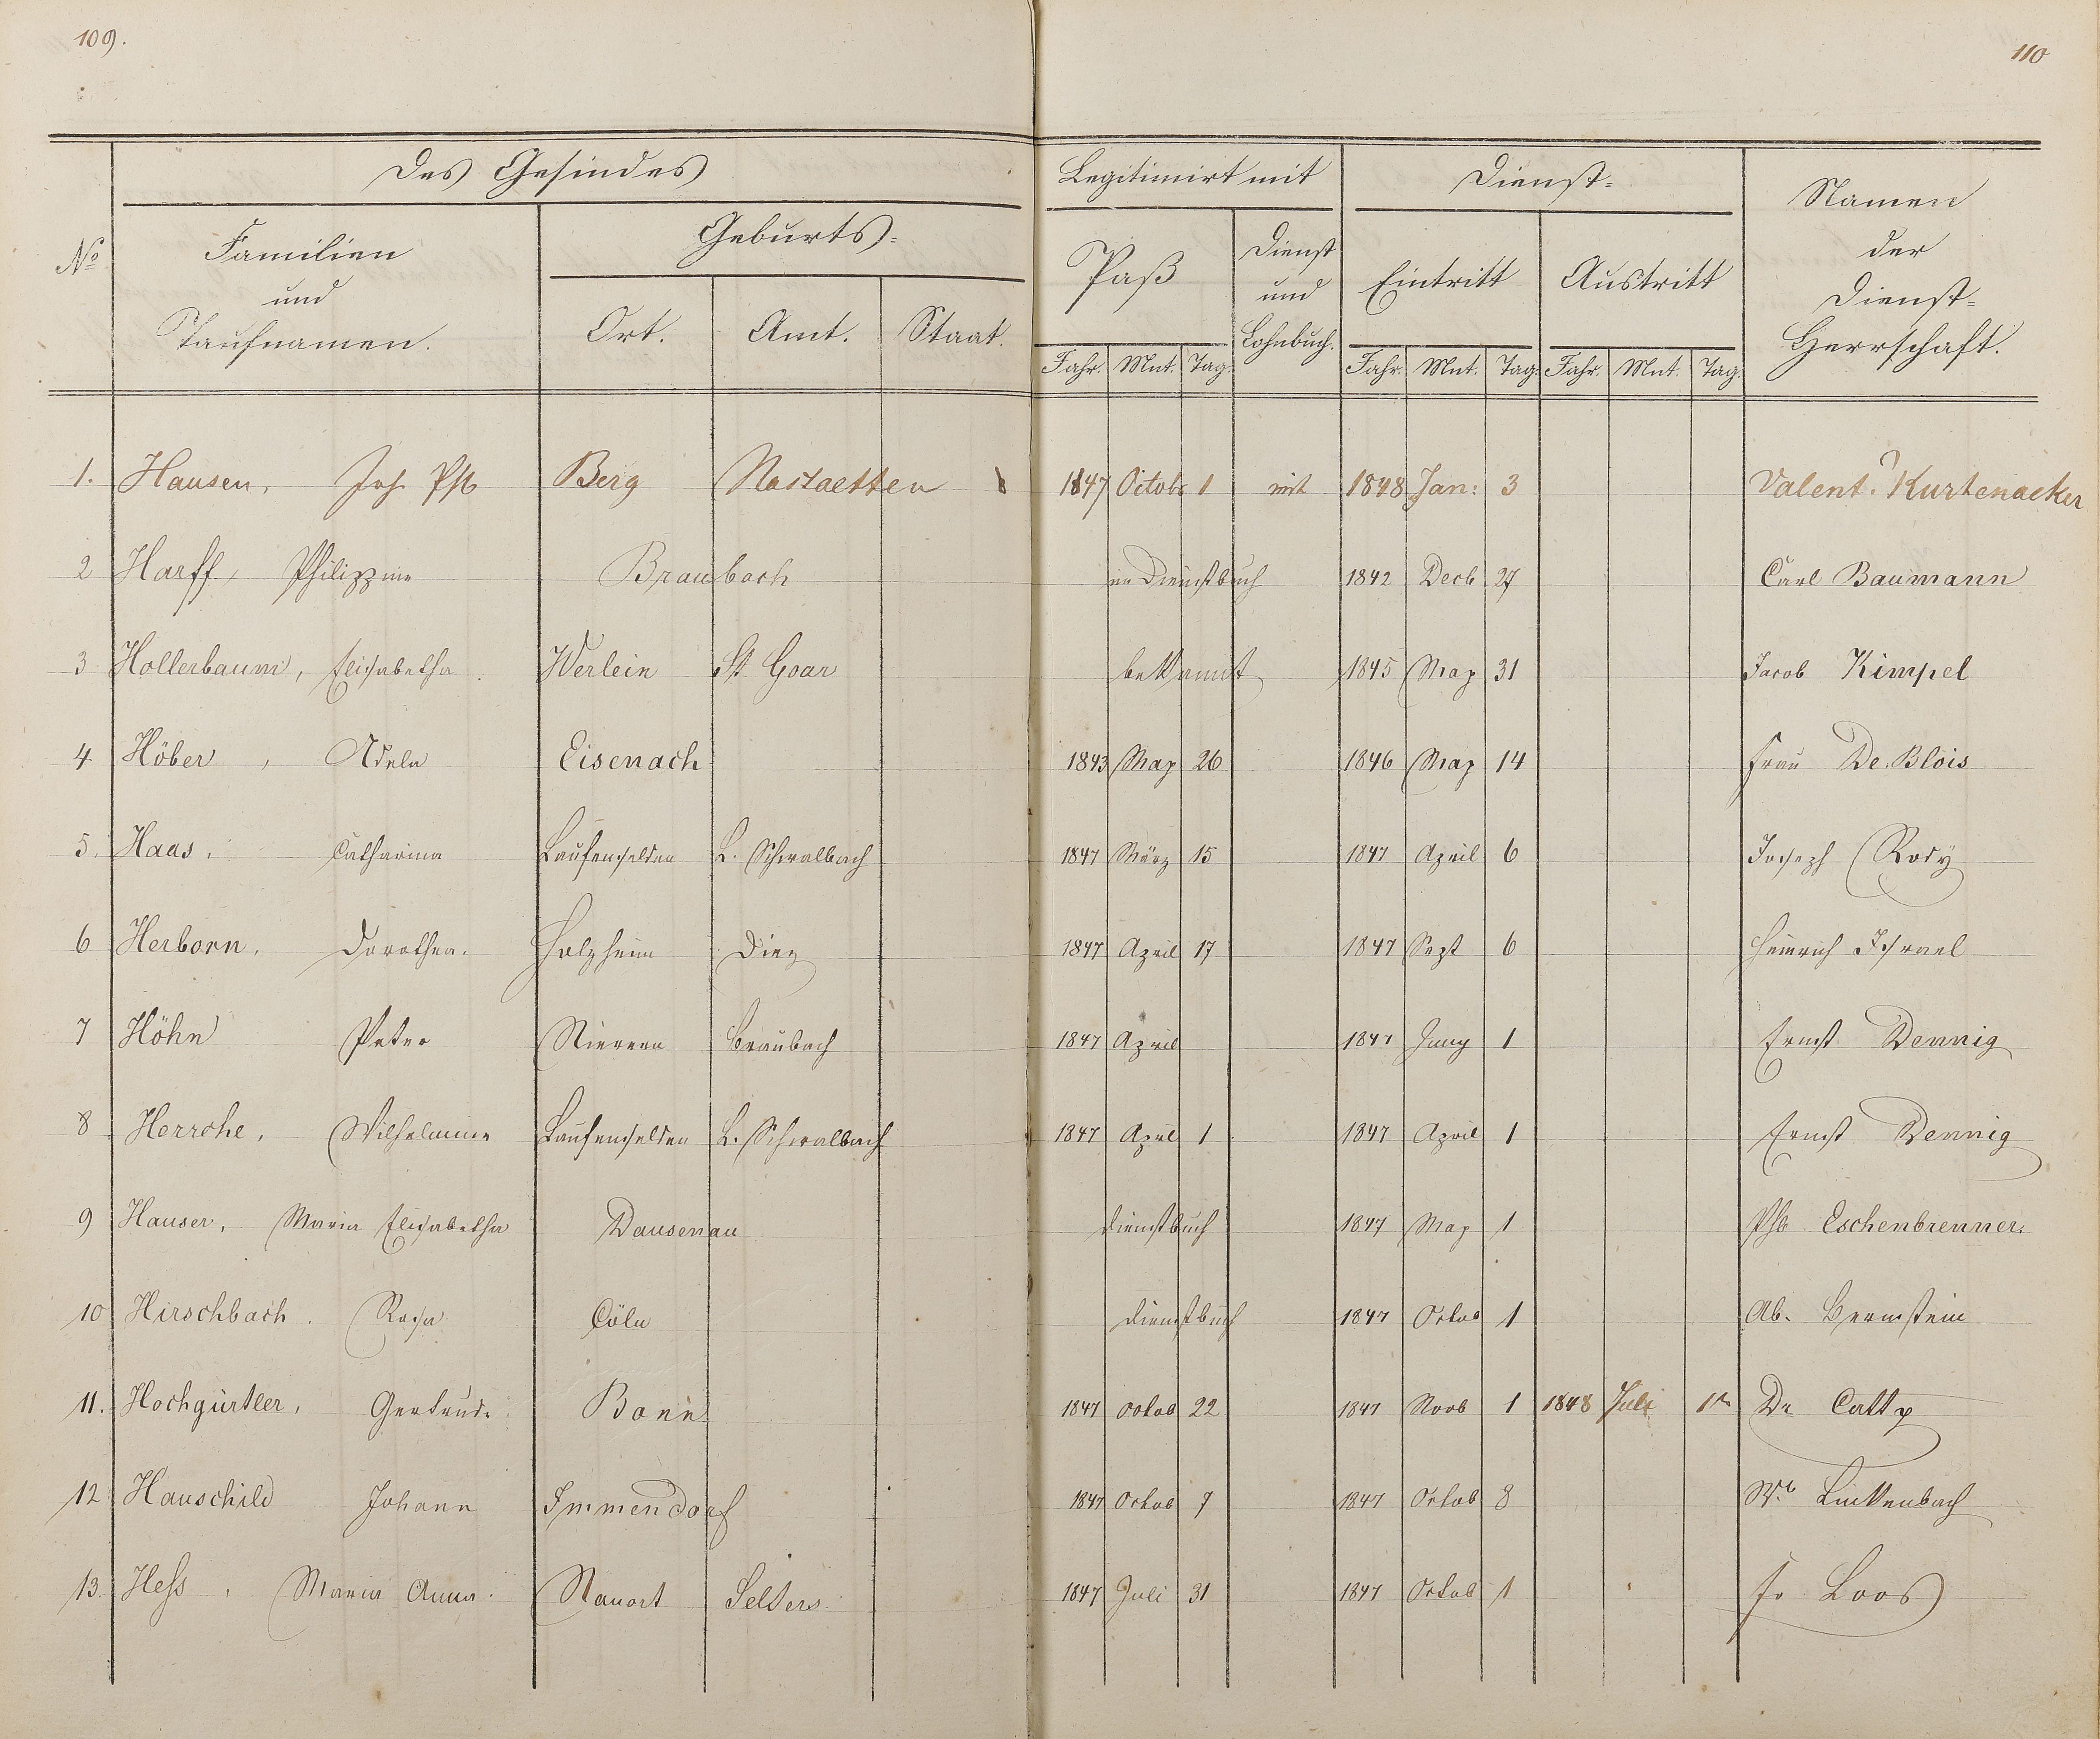 109.
110
Des Gesindes
Legitimirt mit
Dienst=
Namen der Dienst= Herrschaft.
No
Familien und Taufnamen.
Geburts=
Paß
Dienst und Lohnbuch.
Eintritt
Austritt
Ort. Amt. Staat.
Jahr. Mnt. Tag. Jahr. Mnt. Tag. Jahr. Mnt. Tag.
1. Hausen, Joh Phl Berg Nastaetten 1847 Octobr 1 mit 1848 Jan: 3 Valent. Kurtenacker
2 Harff, Philippine Braubach im Dienstbuch 1842 Decb 27 Carl Baumann
3 Hollerbaum, Elisabetha Werlein St Goar bekannt 1845 May 31 Jacob Kimpel
4 Höber, Adele Eisenach 1843 May 26 1846 May 14 Frau De Blois
5. Haas, Catharina Laufenselden L. Schwalbach 1847 März 15 1847 April 6 Joseph Rody
6 Herborn, Dorothea. Holzheim Diez 1847 April 17 1847 Sept 6 Heinrich Israel
7 Höhn Peter Nievern Braubach 1847 April 1847 Juny 1 Ernst Dennig
8 Herrche, Wilhelmine Laufenselden L. Schwalbach 1847 April 1 1847 April 1 Ernst Dennig
9 Hauser, Maria Elisabetha Dausenau Dienstbuch 1847 May 1 Phl Eschenbrenner.
10 Hirschbach. Rosa Cöln Dienstbuch 1847 Octob 1 Ab. Bernstein
11. Hochgürtler, Gertrude Bonn 1847 Octob 22 1847 Novb 1 1848 Juli 1n De Catty
12 Hauschild Johann Immendorf 1847 Octob 7 1847 Octob 8 Linkenbach
13. Heß, Maria Anna. Nauort Selters 1847 Juli 31 1847 Octob 1 Fr Loos